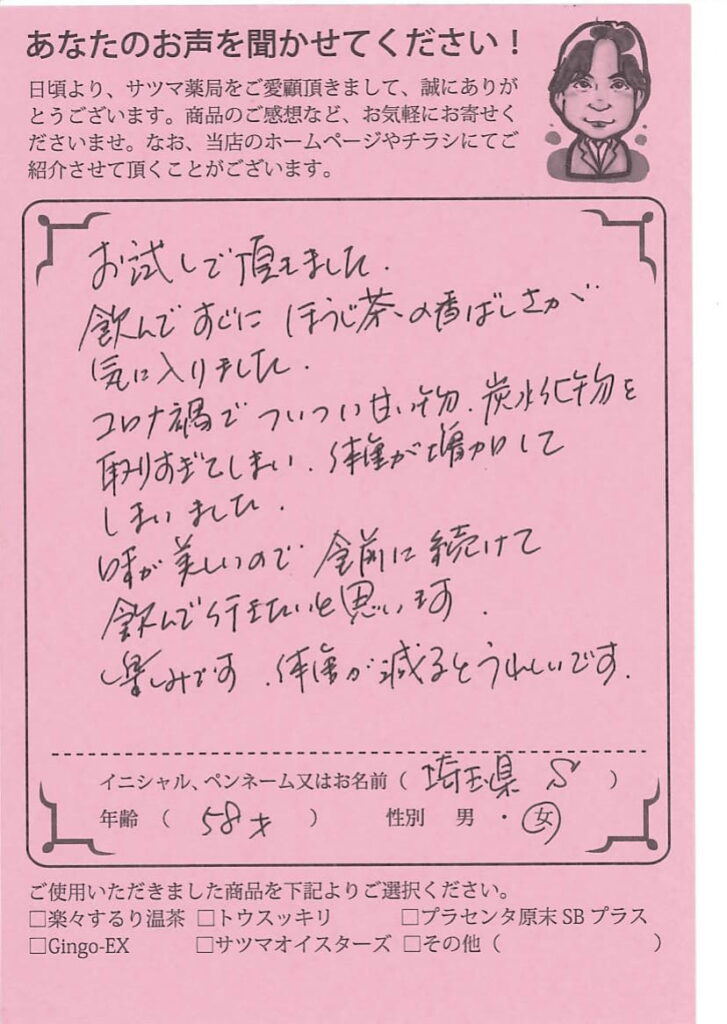 あなたのお声を聞かせてください！
日頃より、サツマ薬局をご愛顧頂きまして、誠にありが
とうございます。商品のご感想など、お気軽にお寄せく
ださいませ。なお、当店のホームページやチラシにてご
紹介させて頂くことがございます。
お試しで頂きました．
飲んですぐに ほうじ茶の香ばしさが
気に入りました．
コロナ禍で ついつい甘い物．炭水化物を
取りすぎてしまい．体重が増加して
しまいました．
味が美しいので 食前に続けて
飲んで行きたいと思います．
楽しみです．体重が減るとうれしいです．
イニシャル、ペンネーム又はお名前（ 埼玉県 S ）
年齢 （ 58才 ） 性別 男 ・ 女
ご使用いただきました商品を下記よりご選択ください。
□楽々するり温茶 □トウスッキリ □プラセンタ原末 SB プラス
□Gingo-EX □サツマオイスターズ □その他（ ）